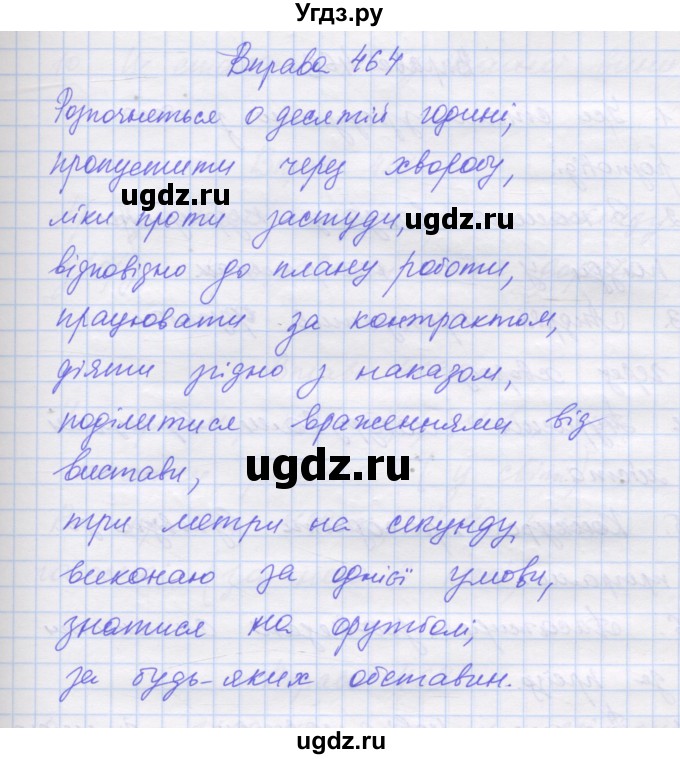 Угдз.ру
Вправа 464
Розпочнеться о десятій годині,
пропустити через хворобу,
ugdz.ru
ugdz.ru
ліки проти застуди,
відповідно до плану роботи,
працювати за контрактом,
діяти згідно з наказом,
поділитися враженнями від
ugdz.ru
вистави,
три метри на секунду,
виконаю за однієї умови,
знатися на футболі,
за будь-яких обставин.
ugdz.ru